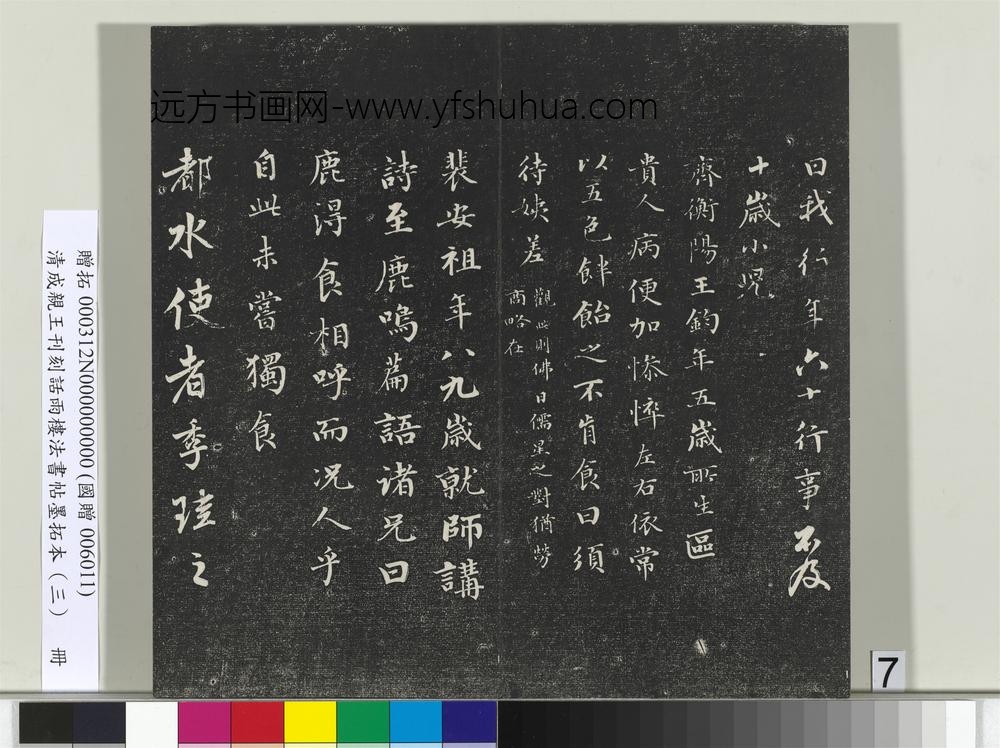 曰我行年六十行事不及
十歲小児
齊衡陽王鈞年五歲所生區
貴人病便加慘悴左右依常
以五色飰飴之不肯食曰須
待姨差
觀此則佛日儒星之對猶勞
商略在
裴安祖年八九歲就師講
詩至鹿鳴篇語诸兄曰
鹿淂食相呼而况人乎
自此未嘗獨食
都水使者季珪之
远方书画网-www.yfshuhua.com
贈拓 000312N000000000 (國贈 006011)
清成親王刊刻話雨樓法書帖墨拓本（三） 冊
7